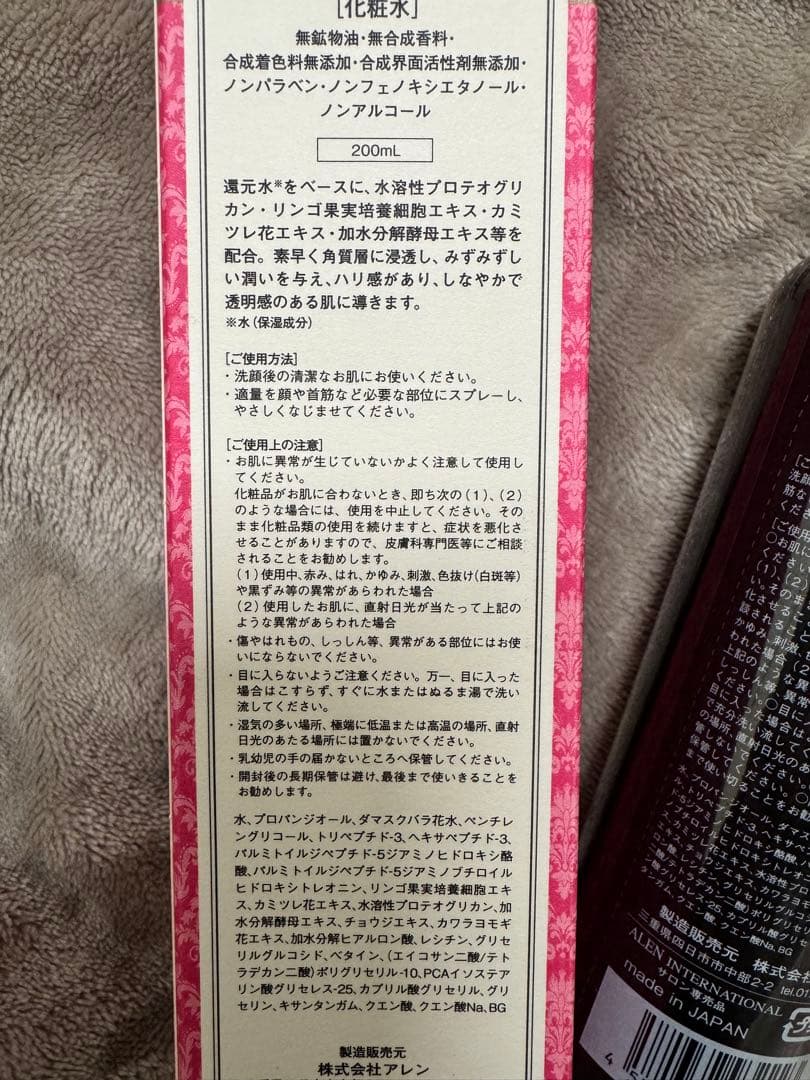 [化粧水]
無鉱物油・無合成香料・
合成着色料無添加・合成界面活性剤無添加・
ノンパラベン・ノンフェノキシエタノール・
ノンアルコール
200mL
還元水※をベースに、水溶性プロテオグリ
カン・リンゴ果実培養細胞エキス・カミ
ツレ花エキス・加水分解酵母エキス等を
配合。素早く角質層に浸透し、みずみずし
い潤いを与え、ハリ感があり、しなやかで
透明感のある肌に導きます。
※水(保湿成分)
[ご使用方法]
・洗顔後の清潔なお肌にお使いください。
・適量を顔や首筋など必要な部位にスプレーし、
やさしくなじませてください。
[ご使用上の注意]
・お肌に異常が生じていないかよく注意して使用し
てください。
化粧品がお肌に合わないとき、即ち次の(1)、(2)
のような場合には、使用を中止してください。その
まま化粧品類の使用を続けますと、症状を悪化さ
せることがありますので、皮膚科専門医等にご相談
されることをお勧めします。
(1)使用中、赤み、はれ、かゆみ、刺激、色抜け(白斑等)
や黒ずみ等の異常があらわれた場合
(2)使用したお肌に、直射日光が当たって上記の
ような異常があらわれた場合
・傷やはれもの、しっしん等、異常がある部位にはお使
いにならないでください。
・目に入らないようご注意ください。万一、目に入った
場合はこすらず、すぐに水またはぬるま湯で洗い
流してください。
・湿気の多い場所、極端に低温または高温の場所、直射
日光のあたる場所には置かないでください。
・乳幼児の手の届かないところへ保管してください。
・開封後の長期保管は避け、最後まで使いきることを
お勧めします。
水、プロパンジオール、ダマスクバラ花水、ペンチレ
ングリコール、トリペプチド-3、ヘキサペプチド-3、
パルミトイルジペプチド-5ジアミノヒドロキシ酪
酸、パルミトイルジペプチド-5ジアミノブチロイル
ヒドロキシトレオニン、リンゴ果実培養細胞エキ
ス、カミツレ花エキス、水溶性プロテオグリカン、加
水分解酵母エキス、チョウジエキス、カワラヨモギ
花エキス、加水分解ヒアルロン酸、レシチン、グリセ
リルグルコシド、ベタイン、(エイコサン二酸/テト
ラデカン二酸)ポリグリセリル-10、PCAイソステア
リン酸グリセレス-25、カプリル酸グリセリル、グリ
セリン、キサンタンガム、クエン酸、クエン酸Na、BG
製造販売元
株式会社アレン
製造販売元 株式会
三重県四日市市中部2-2 tel.01
ALEN INTERNATIONAL
サロン専売品
made in JAPAN